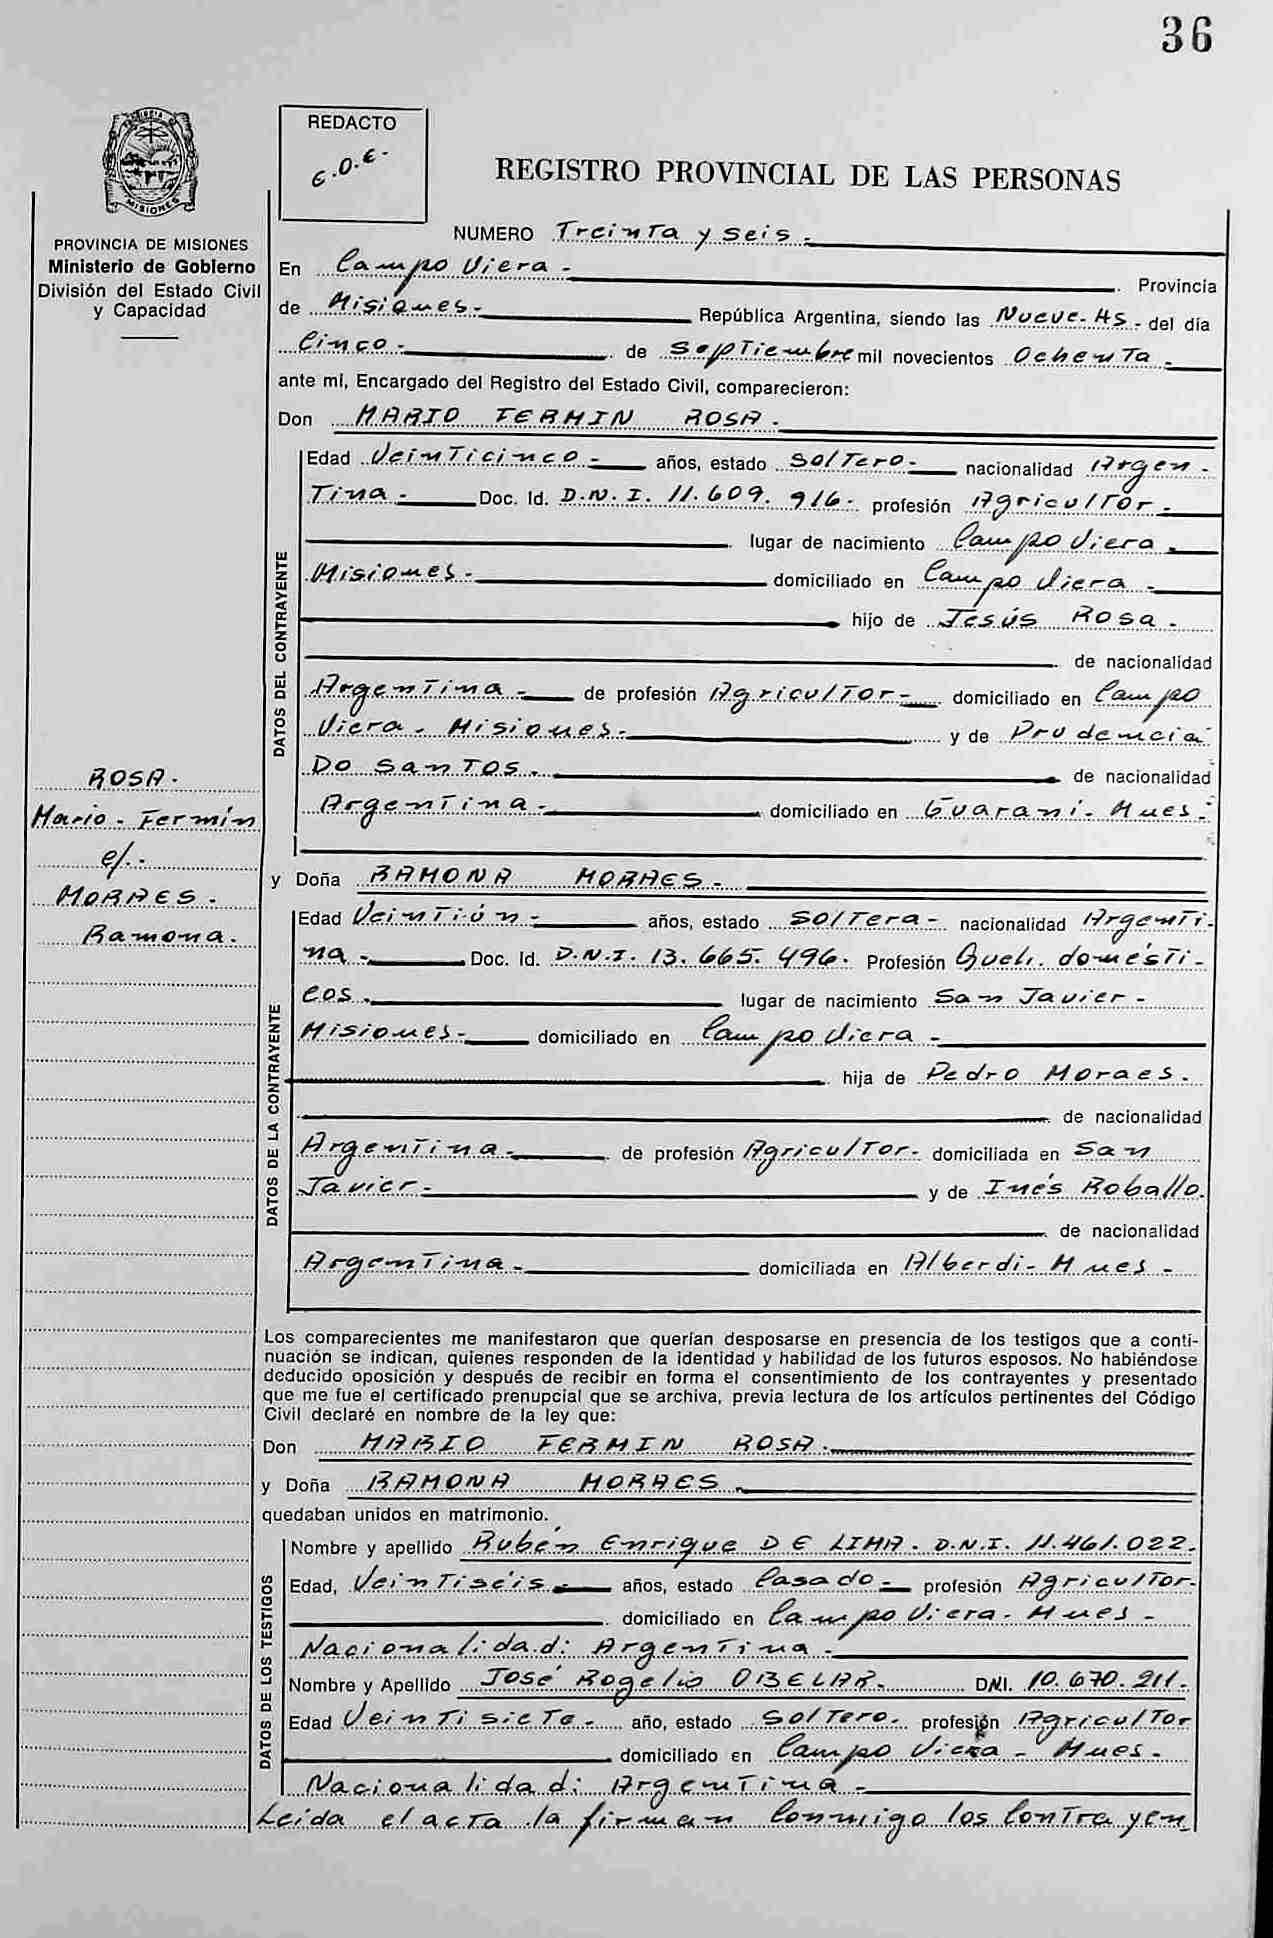 36
REDACTO
E.O.E.-
REGISTRO PROVINCIAL DE LAS PERSONAS
PROVINCIA DE MISIONES
Ministerio de Gobierno
División del Estado Civil
y Capacidad
NUMERO Treinta y seis.-
En Campo Viera - Provincia
de Misiones.- República Argentina, siendo las Nueve-Hs.- del día
Cinco.- de Septiembre mil novecientos Ochenta.-
ante mí, Encargado del Registro del Estado Civil, comparecieron:
Don MARIO FERMIN ROSA.-
DATOS DEL CONTRAYENTE
Edad Veinticinco.- años, estado Soltero.- nacionalidad Argen-
tina.- Doc. Id. D.N.I. 11.609.916.- profesión Agricultor.-
lugar de nacimiento Campo Viera.-
Misiones.- domiciliado en Campo Viera.-
hijo de Jesús Rosa.-
de nacionalidad
Argentina.- de profesión Agricultor.- domiciliado en Campo
Viera - Misiones.- y de Prudencia
Do Santos.- de nacionalidad
Argentina.- domiciliado en Guaraní - Mnes.-
ROSA.-
Mario - Fermín
c/.-
MORAES.-
Ramona.-
y Doña RAMONA MORAES.-
DATOS DE LA CONTRAYENTE
Edad Veintiún.- años, estado Soltera.- nacionalidad Argenti-
na.- Doc. Id. D.N.I. 13.665.496.- Profesión Queh. domésti-
cos.- lugar de nacimiento San Javier.-
Misiones.- domiciliado en Campo Viera.-
hija de Pedro Moraes.-
de nacionalidad
Argentina.- de profesión Agricultor.- domiciliada en San
Javier.- y de Inés Roballo.
de nacionalidad
Argentina.- domiciliada en Alberdi - Mnes.-
Los comparecientes me manifestaron que querían desposarse en presencia de los testigos que a conti-
nuación se indican, quienes responden de la identidad y habilidad de los futuros esposos. No habiéndose
deducido oposición y después de recibir en forma el consentimiento de los contrayentes y presentado
que me fue el certificado prenupcial que se archiva, previa lectura de los artículos pertinentes del Código
Civil declaré en nombre de la ley que:
Don MARIO FERMIN ROSA.-
y Doña RAMONA MORAES.-
quedaban unidos en matrimonio.
DATOS DE LOS TESTIGOS
Nombre y apellido Rubén Enrique DE LIMA. D.N.I. 11.461.022.
Edad, Veintiséis.- años, estado Casado.- profesión Agricultor.
domiciliado en Campo Viera - Mnes.-
Nacionalidad: Argentina.-
Nombre y Apellido José Rogelio OBELAR.- DNI. 10.670.211.
Edad Veintisiete.- año, estado Soltero.- profesión Agricultor
domiciliado en Campo Viera - Mnes.-
Nacionalidad: Argentina.-
Leída el acta la firman Conmigo los Contrayen-